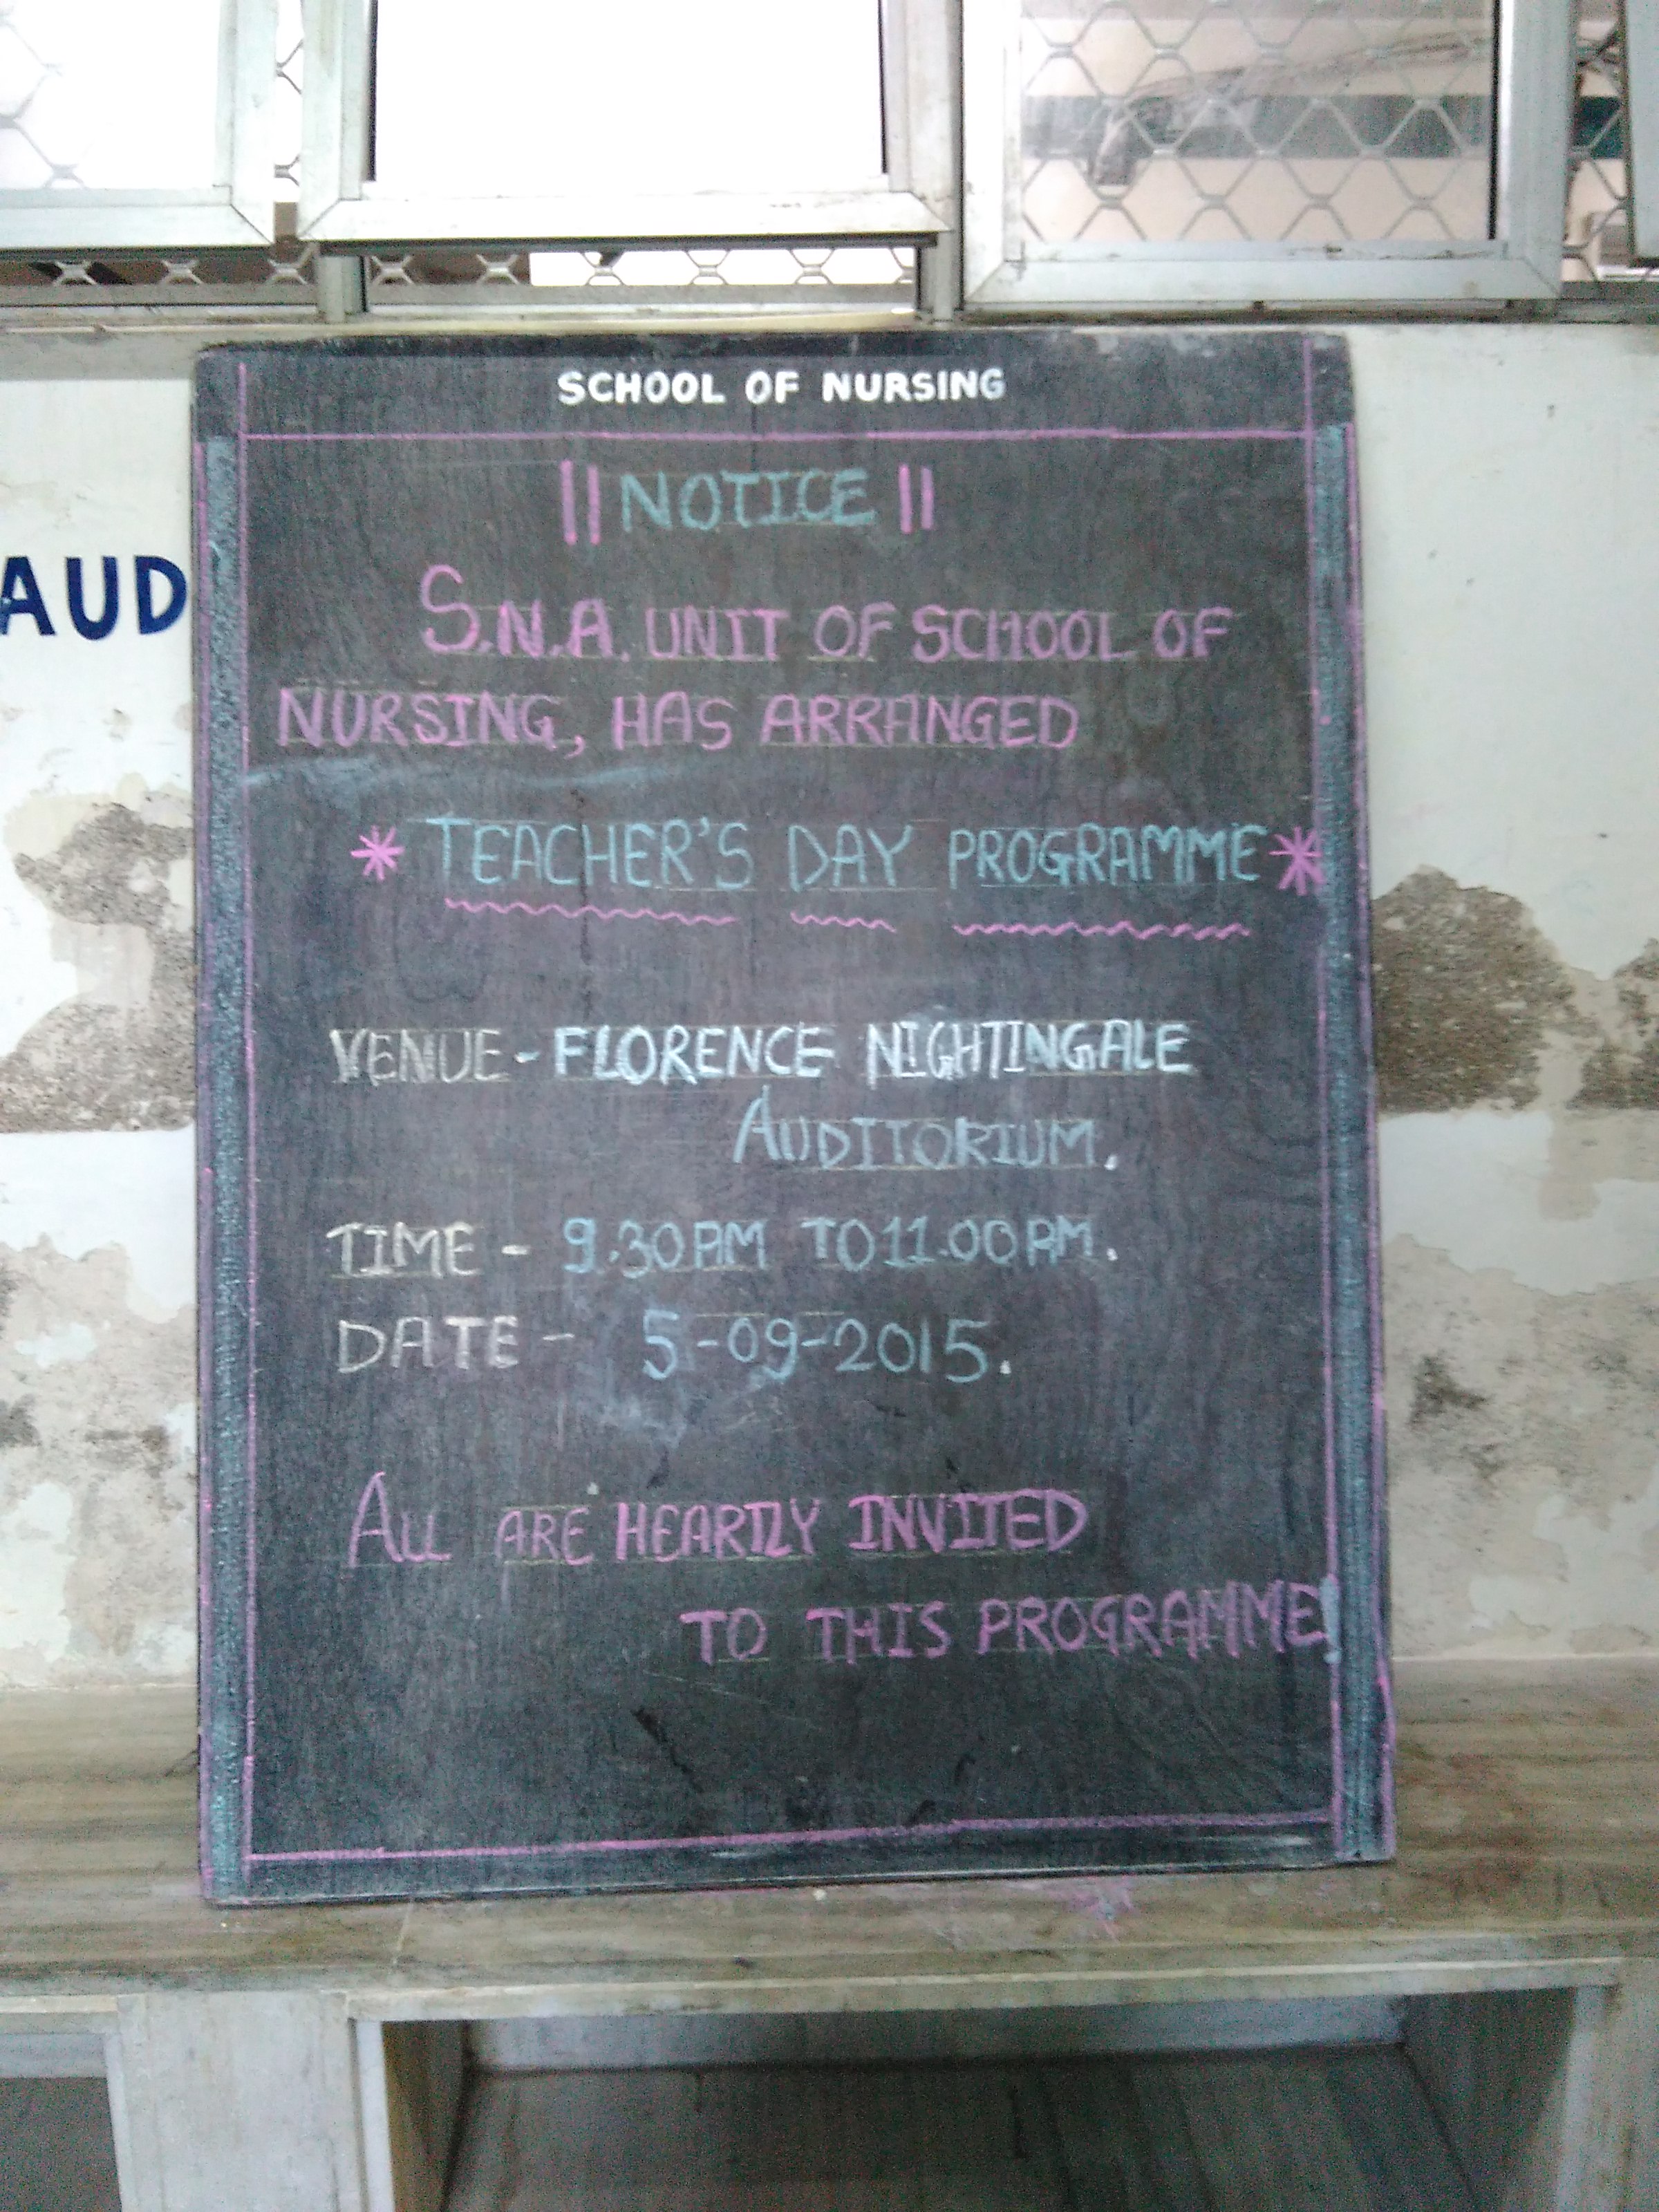 SCHOOL OF NURSING
|| NOTICE ||
AUD
S.N.A. UNIT OF SCHOOL OF
NURSING, HAS ARRANGED
* TEACHER'S DAY PROGRAMME *
VENUE - FLORENCE NIGHTINGALE
AUDITORIUM.
TIME - 9.30 AM TO 11.00 AM.
DATE - 5-09-2015.
ALL ARE HEARTLY INVITED
TO THIS PROGRAMME!